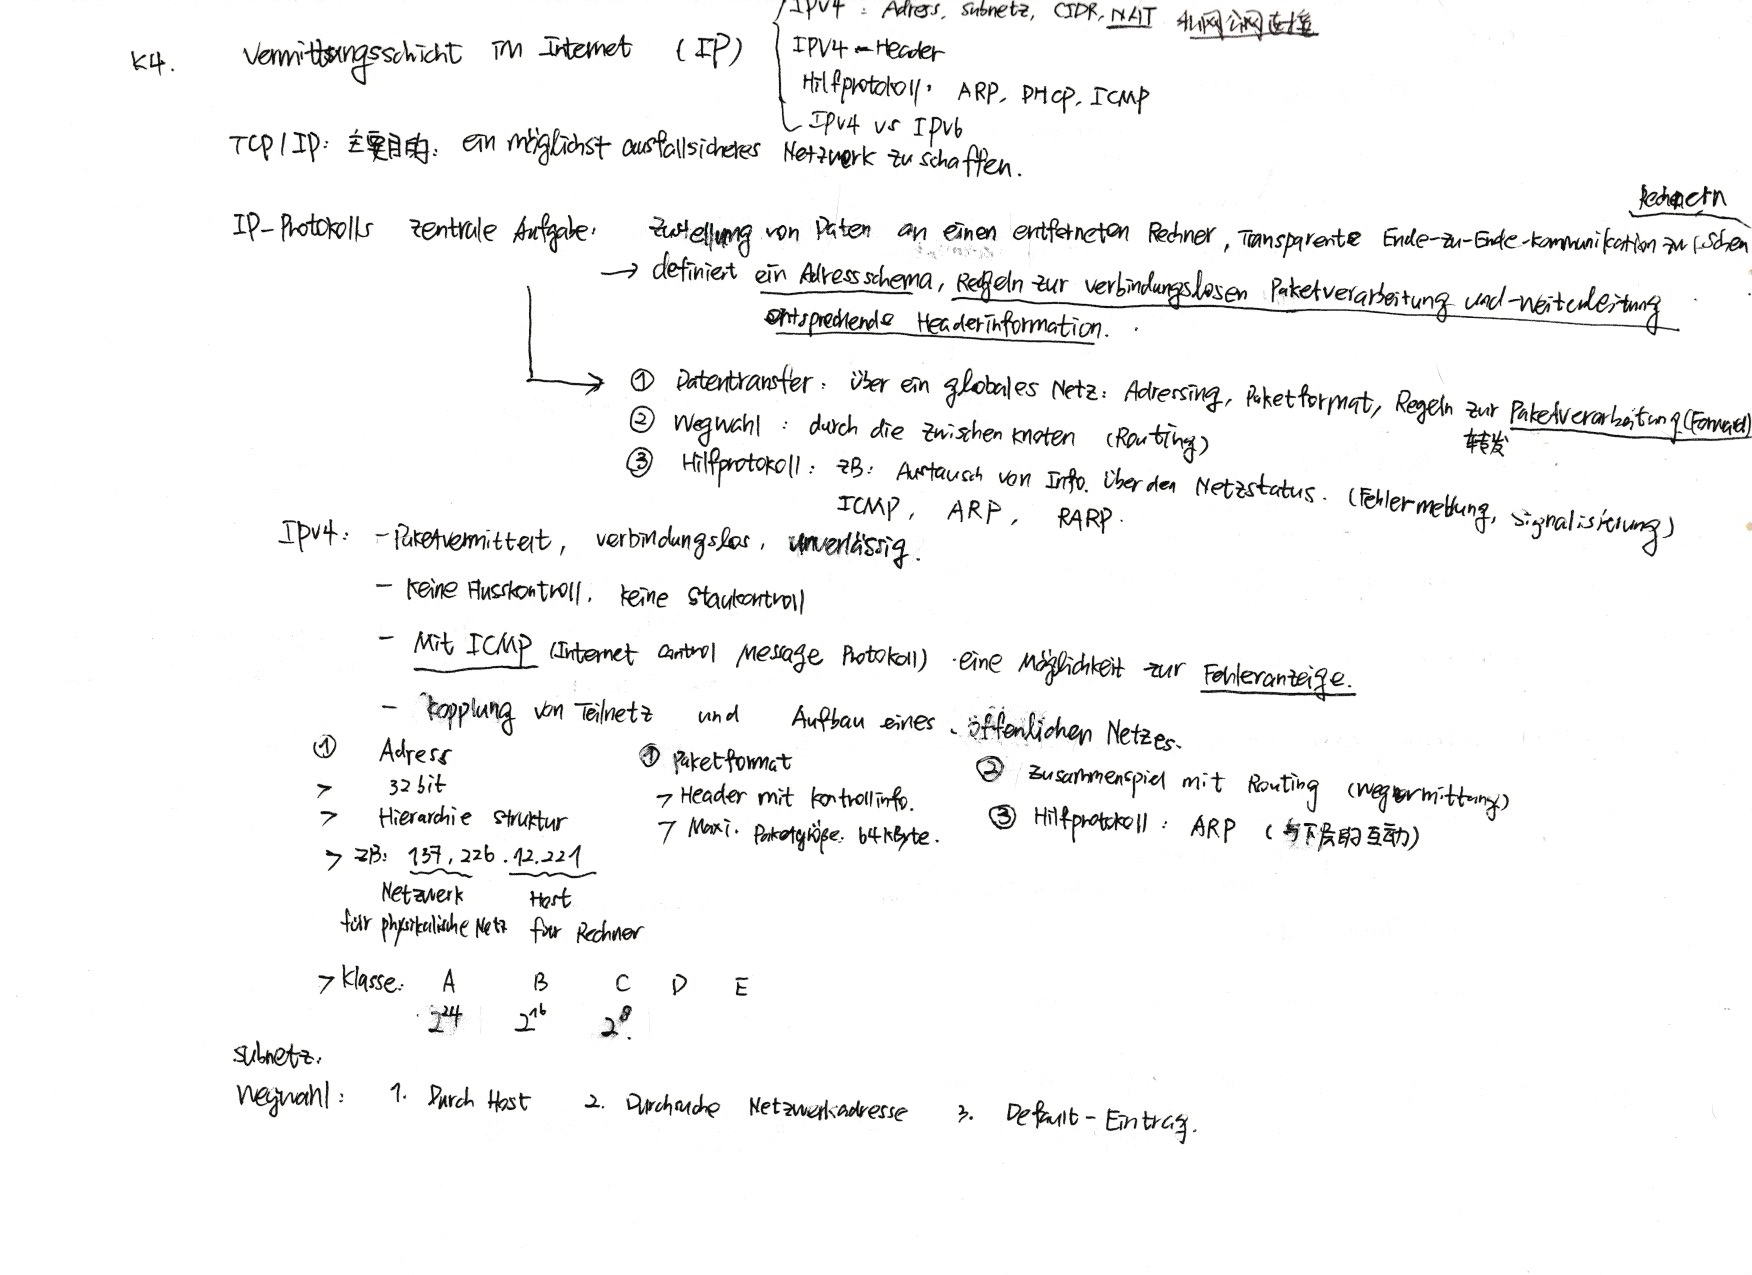 IPv4 : Adress, subnetz, CIDR, NAT 私网公网连接
K4. Vermittlungsschicht im Internet (IP)
IPV4-Header
Hilfprotokoll: ARP, DHCP, ICMP
IPv4 vs IPv6
TCP/IP: 主要目的: ein möglichst ausfallsicheres Netzwerk zu schaffen.
Rechnern
IP-Protokolls zentrale Aufgabe: Zustellung von Daten an einen entfernten Rechner, Transparente Ende-zu-Ende-Kommunikation zwischen
→ definiert ein Adressschema, Regeln zur verbindungslosen Paketverarbeitung und -weiterleitung
entsprechende Headerinformation.
① Datentransfer: über ein globales Netz: Adressing, Paketformat, Regeln zur Paketverarbeitung (Forward)
转发
② Wegwahl : durch die Zwischenknoten (Routing)
③ Hilfprotokoll: ZB: Austausch von Info. über den Netzstatus. (Fehlermeldung, Signalisierung)
ICMP, ARP, RARP.
IPv4: - Paketvermittelt, verbindungslos, unverlässig.
- keine Flusskontroll, keine Staukontroll
- Mit ICMP (Internet control Message Protokoll) eine Möglichkeit zur Fehleranzeige.
- Kopplung von Teilnetz und Aufbau eines öffenlichen Netzes.
① Adress
> 32bit
> Hierarchie struktur
> ZB: 137.226.12.221
Netzwerk Host
für physikalische Netz für Rechner
> Klasse: A B C D E
2^24 2^16 2^8.
① Paketformat
> Header mit Kontrollinfo.
> Maxi. Paketgröße: 64kByte.
② Zusammenspiel mit Routing (Wegvermittung)
③ Hilfprotokoll: ARP (与下层的互动)
subnetz.
Wegwahl: 1. Durch Host 2. Durchsuche Netzwerkadresse 3. Default-Eintrag.